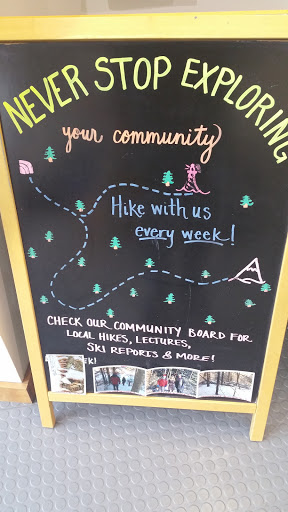 NEVER STOP EXPLORING
your community
Hike with us
every week!
CHECK OUR COMMUNITY BOARD FOR
LOCAL HIKES, LECTURES,
SKI REPORTS & MORE!